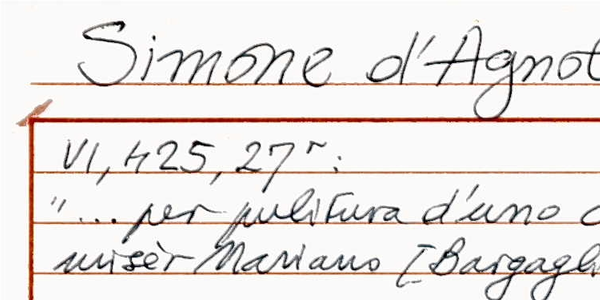 Simone d'Agnol
VI, 425, 27r:
"... per pulitura d'uno
misèr Mariano [Bargagli